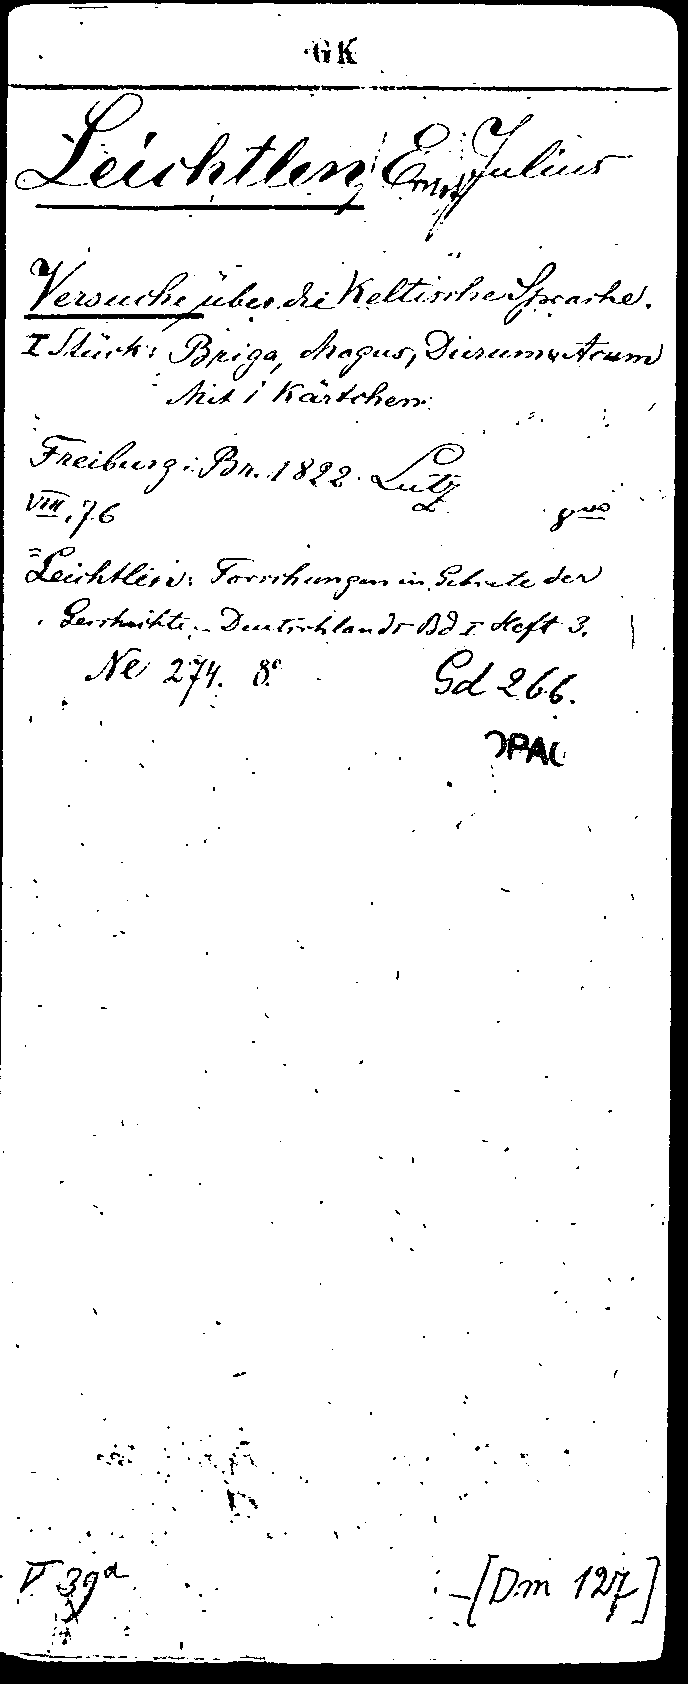 GK
Leichtlen, Ernst Julius
Versuche über die Keltische Sprache.
I Stück: Briga, Magus, Durum, Acum
Mit 1 Kärtchen.
Freiburg i. Br. 1822. Lutz
VIII, 76
= Leichtlen: Forschungen im Gebiete der
Geschichte Deutschlands Bd I Heft 3.
Ne 274. 8° Gd 266.
OPAC
V 39a [Dm 127]